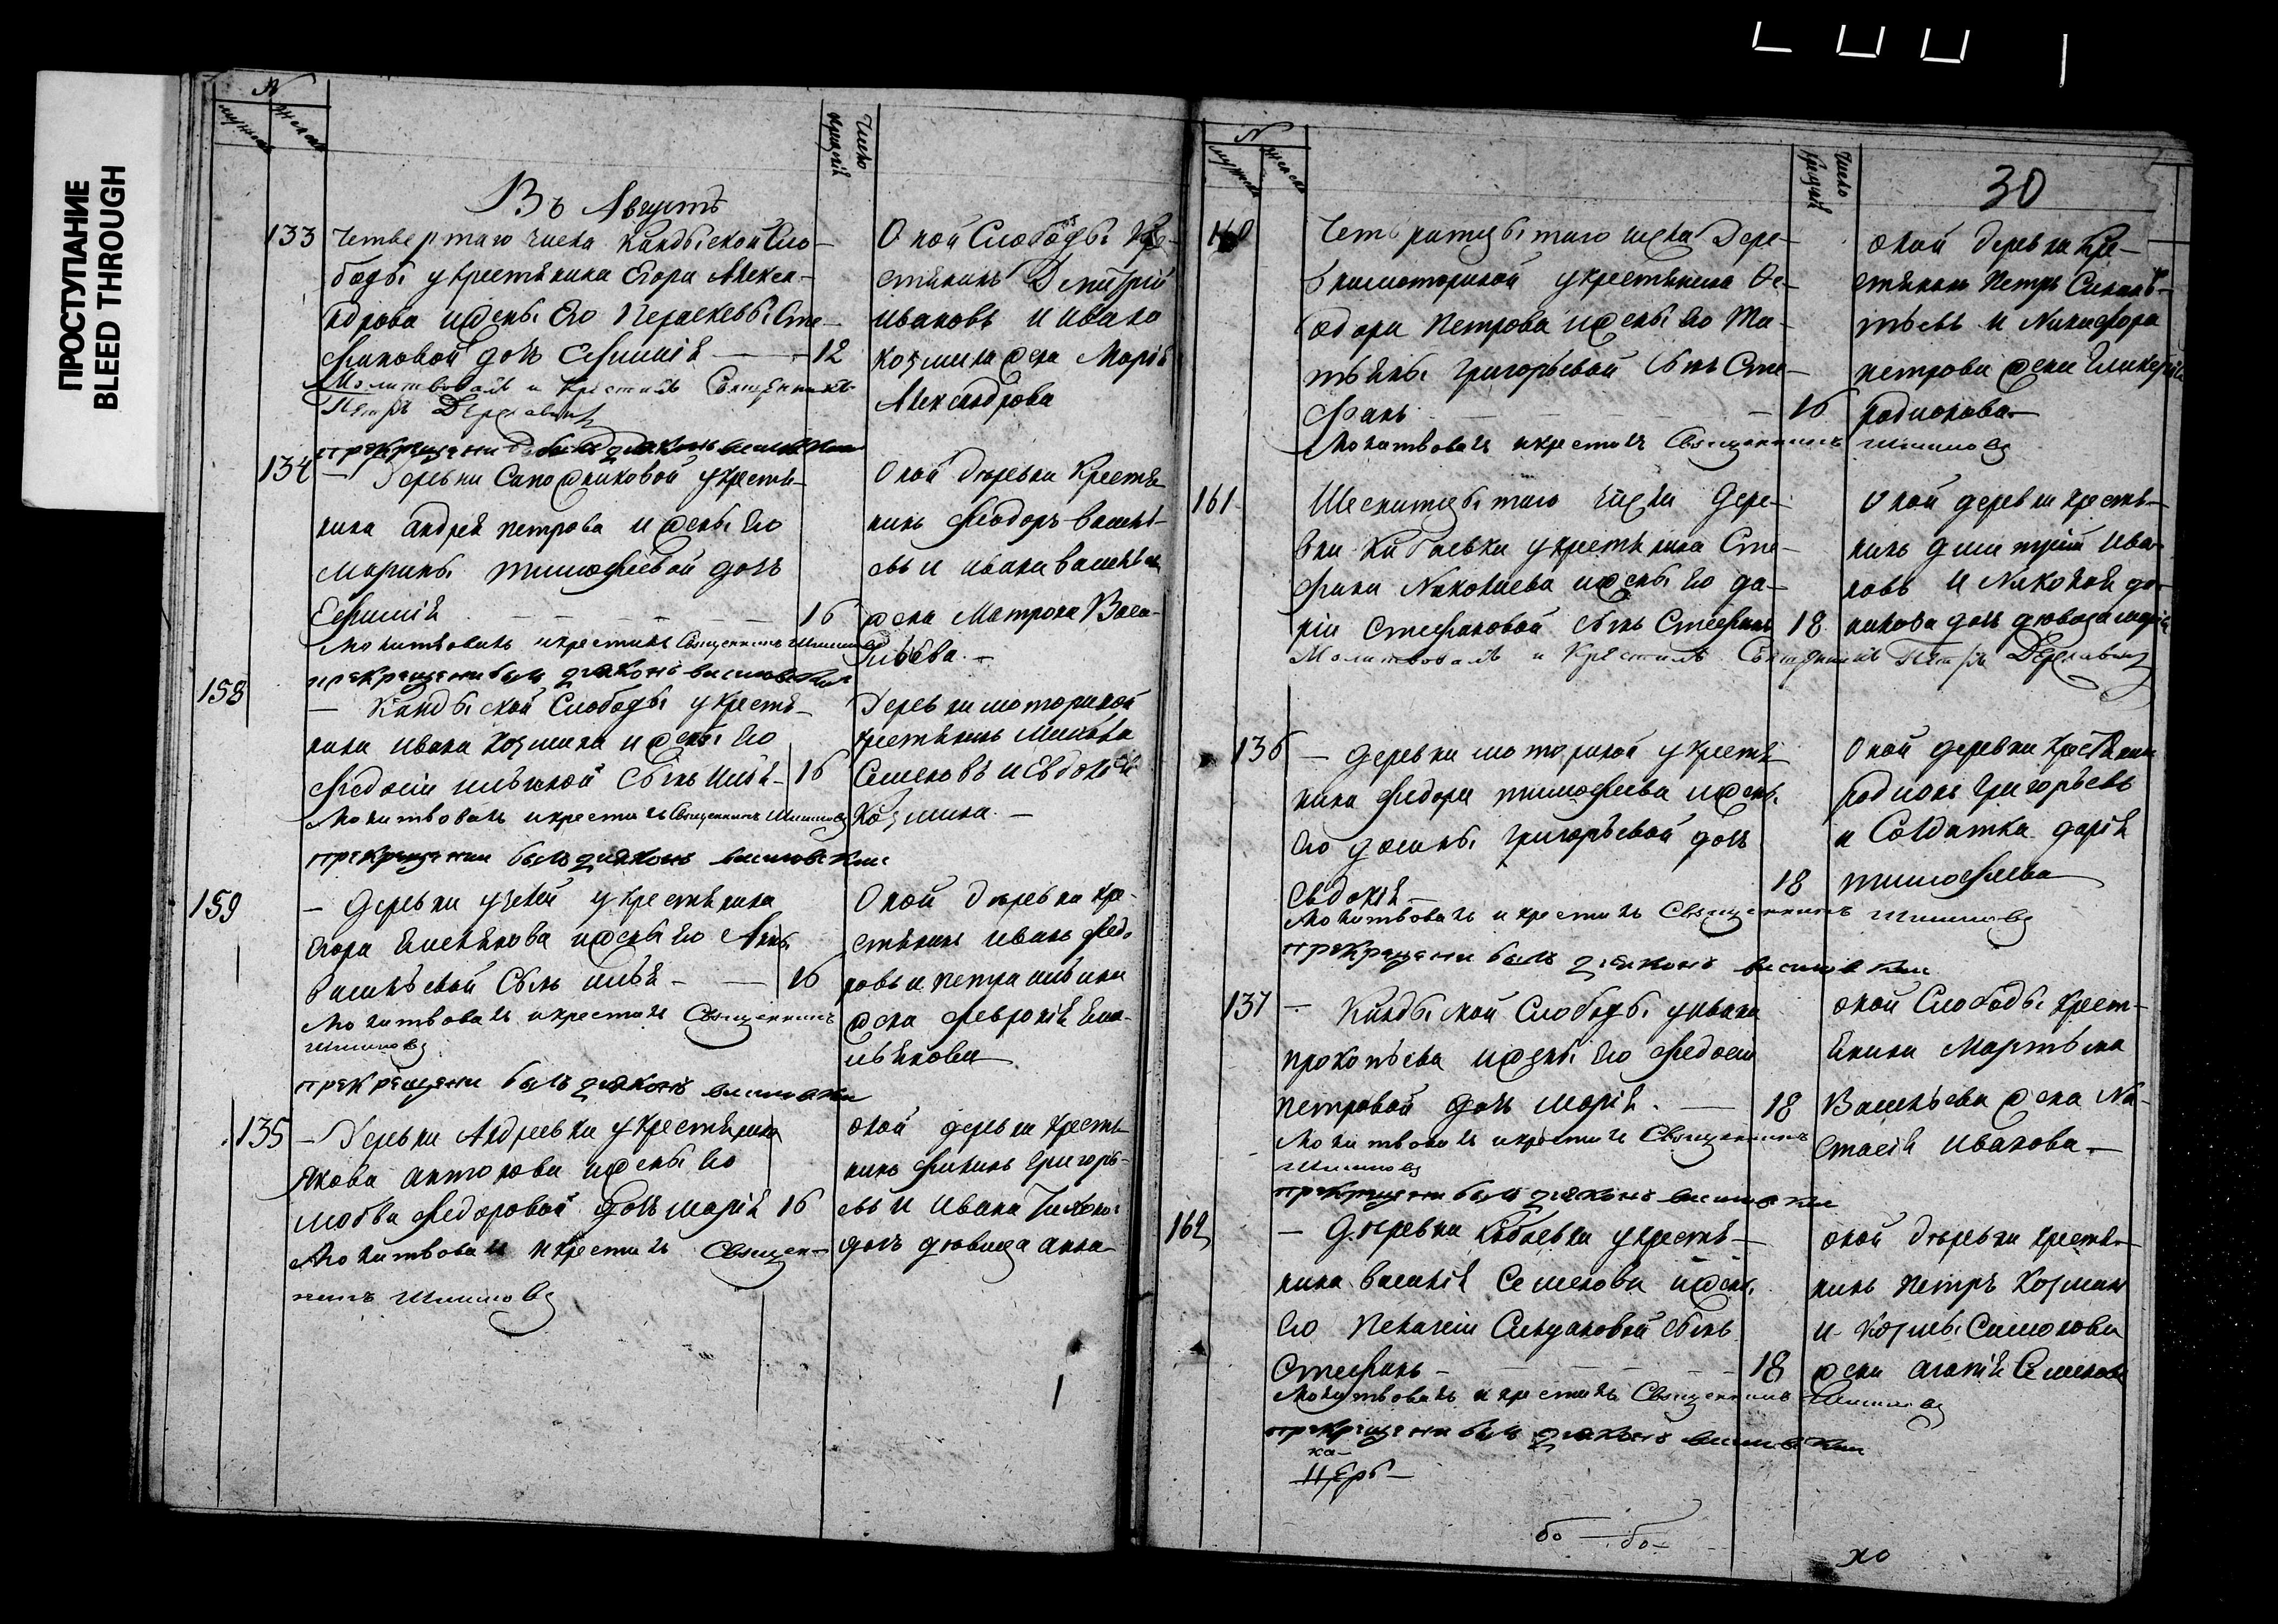 ПРОСТУПАНИЕ
BLEED THROUGH
№
мужеска
женска
Число
крещенiй
Въ Августѣ
133
Четвертаго числа Кандыской Сло-
боды у крестьянина Егора Алексан-
дрова и жены Его Параскевы Сте-
фановой дочь Евфимiя — 12
Молитвовалъ и Крестилъ Священникъ
Петръ Державинъ
Оной Слободы Кре-
стьянинъ Дмитрiй
Ивановъ и Ивана
Козмина жена Марiя
Александрова
134
— Деревни Сапожниковой у крестья-
нина Андрея Петрова и жены Его
Марины Тимофеевой дочь
Евфимiя — 16
Молитвовалъ и крестилъ Священникъ
при крещенiи былъ дiаконъ
Оной деревни Крестья
нинъ Феодоръ Василь-
евъ и Ивана Васильева
жена Матрона Васи-
льева. —
158
— Кандыской Слободы у крестья-
нина Ивана Козмина и жены Его
Федосiи Ильиной сынъ Илья — 16
Молитвовалъ и крестилъ Священникъ
при крещенiи былъ дiаконъ
Деревни Моториной
крестьянинъ
Семеновъ и Евдокiя
Козмина. —
159
— Деревни у крестьянина
Егора Емельянова и жены Его Анны
Васильевой Сынъ Илья — 16
Молитвовалъ и крестилъ Священникъ
при крещенiи былъ дiаконъ
Оной деревни кре-
стьянинъ Иванъ Федо
ровъ и Петра Ильина
жена Феврония Еме-
льянова
135
— Деревни Андреевки у крестьянина
Якова Антонова и жены Его
Федоровой дочь Марiя 16
Молитвовалъ и крестилъ Священ-
никъ
оной деревни крестья
нинъ Филипъ Григорь-
евъ и Ивана
дочь девица Анна
№
мужеска
женска
Число
крещенiй
30
160
Четырнатцатаго числа Дере-
вни Моториной у крестьянина Фе-
одора Петрова и жены Его Та-
тьяны Григорьевой сынъ Сте-
фанъ — 16
Молитвовалъ и крестилъ Священникъ
оной деревни кре-
стьянинъ Петръ
и Никифора
Петрова жена Гликерiя
Родионова
161
Шеснатцатаго числа Дере-
вни Кибаевки у крестьянина Сте-
фана Николаева и жены Его Да-
рiи Стефановой сынъ Стефанъ 18
Молитвовалъ и Крестилъ Священникъ Петръ Державинъ
Оной деревни крестья-
нинъ Дмитрiй Ива-
новъ и Николая
дочь девица Марiя
136
— Деревни Моториной у крестья
нина Федора Тимофеева и жены
Его Григорьевой дочь
Евдокiя — 18
Молитвовалъ и крестилъ Священникъ
при крещенiи былъ дiаконъ
Оной деревни крестьянинъ
Родионъ Григорьевъ
и Солдатка Дарiя
Тимофеева
137
— Кандыской Слободы у Ивана
Прокопьева и жены Его Федосiи
Петровой дочь Марiя. — 18
Молитвовалъ и крестилъ Священникъ
при крещенiи былъ дiаконъ
оной Слободы крест-
янина Мартына
Васильева жена На-
стасiя Иванова —
162
— Деревни Кибаевки у крестья-
нина Василiя Семенова и жены
Его Пелагеи сынъ
Стефанъ — 18
Молитвовалъ и крестилъ Священникъ
при крещенiи былъ дiаконъ
оной деревни крестья-
нинъ Петръ Козминъ
и Козмы
жена Агафiя Семенова